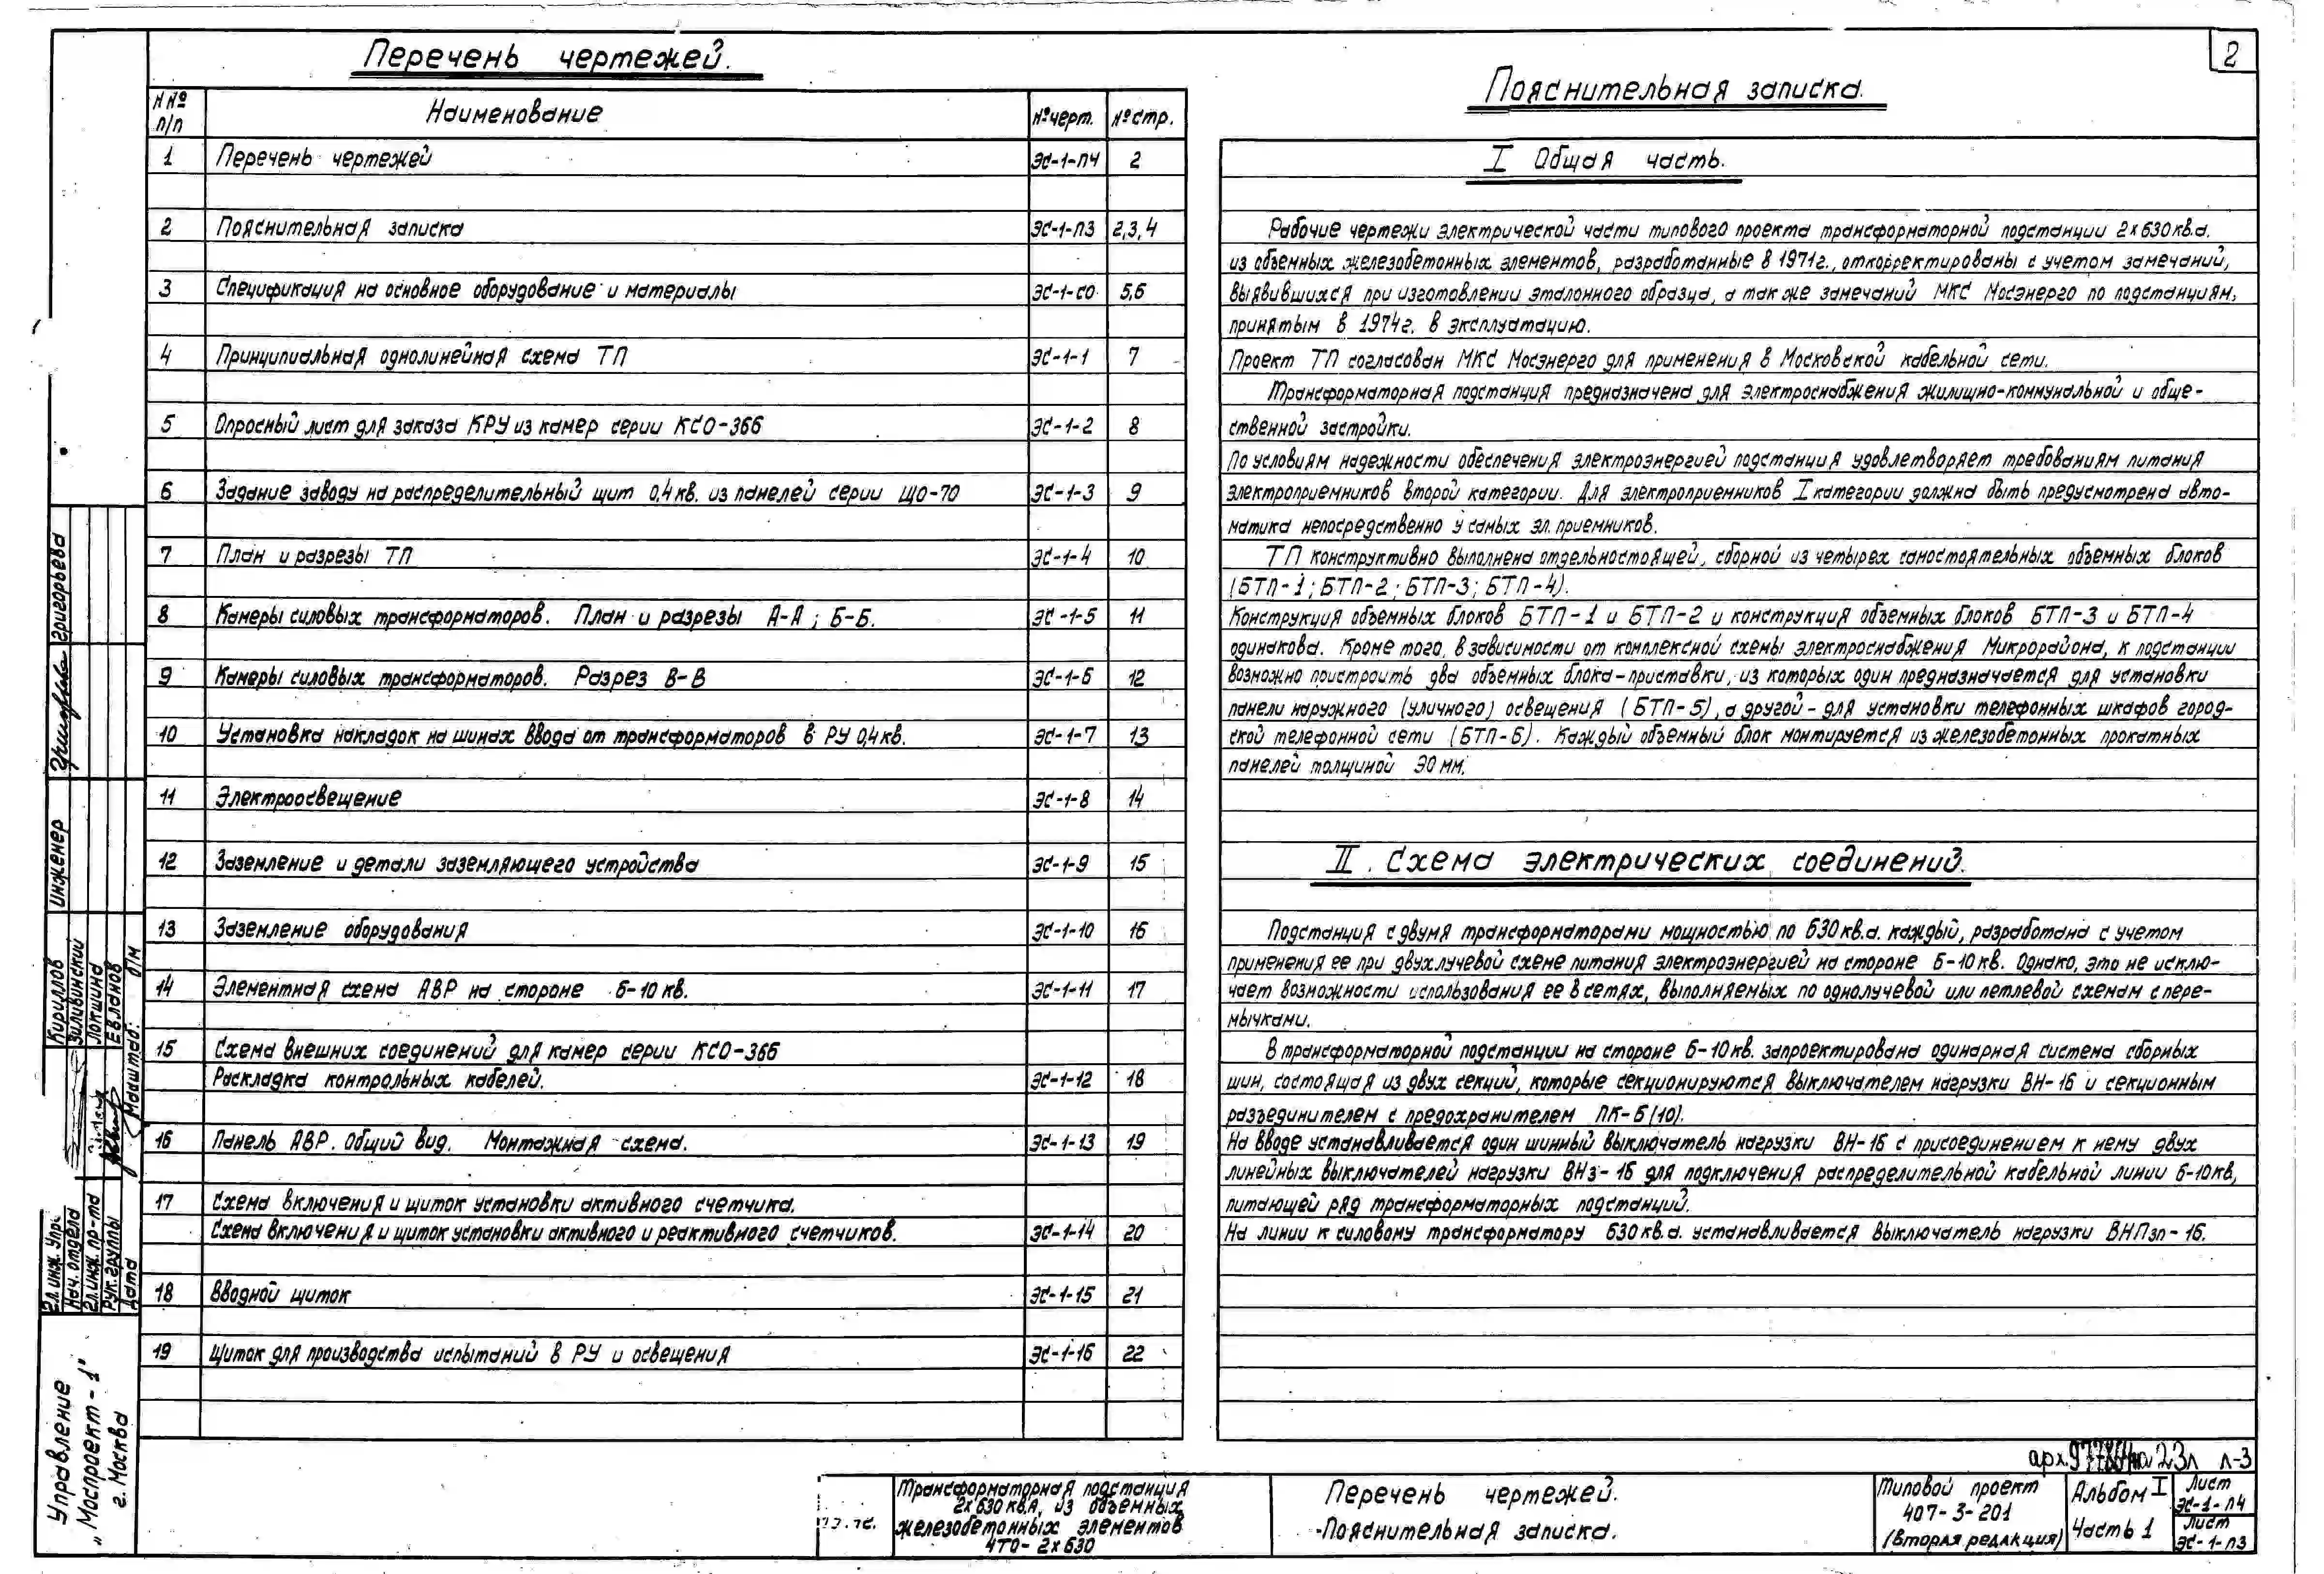 2
Перечень чертежей.
№№ п/п
Наименование
№ черт.
№ стр.
1 Перечень чертежей ЭС-1-ПЧ 2
2 Пояснительная записка ЭС-1-ПЗ 2,3,4
3 Спецификация на основное оборудование и материалы ЭС-1-СО 5,6
4 Принципиальная однолинейная схема ТП ЭС-1-1 7
5 Опросный лист для заказа КРУ из камер серии КСО-366 ЭС-1-2 8
6 Задание заводу на распределительный щит 0,4 кв. из панелей серии ЩО-70 ЭС-1-3 9
7 План и разрезы ТП ЭС-1-4 10
8 Камеры силовых трансформаторов. План и разрезы А-А ; Б-Б. ЭС-1-5 11
9 Камеры силовых трансформаторов. Разрез В-В ЭС-1-6 12
10 Установка накладок на шинах ввода от трансформаторов в РУ 0,4 кв. ЭС-1-7 13
11 Электроосвещение ЭС-1-8 14
12 Заземление и детали заземляющего устройства ЭС-1-9 15
13 Заземление оборудования ЭС-1-10 16
14 Элементная схема АВР на стороне 6-10 кв. ЭС-1-11 17
15 Схема внешних соединений для камер серии КСО-366
Раскладка контрольных кабелей. ЭС-1-12 18
16 Панель АВР. Общий вид. Монтажная схема. ЭС-1-13 19
17 Схема включения и щиток установки активного счетчика.
Схема включения и щиток установки активного и реактивного счетчиков. ЭС-1-14 20
18 Вводной щиток ЭС-1-15 21
19 Щиток для производства испытаний в РУ и освещения ЭС-1-16 22
Пояснительная записка.
I Общая часть.
Рабочие чертежи электрической части типового проекта трансформаторной подстанции 2х630 кв.а.
из объемных железобетонных элементов, разработанные в 1971г., откорректированы с учетом замечаний,
выявившихся при изготовлении эталонного образца, а так же замечаний МКС Мосэнерго по подстанциям,
принятым в 1974г. в эксплуатацию.
Проект ТП согласован МКС Мосэнерго для применения в Московской кабельной сети.
Трансформаторная подстанция предназначена для электроснабжения жилищно-коммунальной и обще-
ственной застройки.
По условиям надежности обеспечения электроэнергией подстанция удовлетворяет требованиям питания
электроприемников второй категории. Для электроприемников I категории должна быть предусмотрена авто-
матика непосредственно у самых эл. приемников.
ТП конструктивно выполнена отдельностоящей, сборной из четырех самостоятельных объемных блоков
(БТП-1 ; БТП-2 ; БТП-3 ; БТП-4).
Конструкция объемных блоков БТП-1 и БТП-2 и конструкция объемных блоков БТП-3 и БТП-4
одинакова. Кроме того, в зависимости от комплексной схемы электроснабжения Микрорайона, к подстанции
возможно пристроить два объемных блока-приставки, из которых один предназначается для установки
панели наружного (уличного) освещения (БТП-5), а другой - для установки телефонных шкафов город-
ской телефонной сети (БТП-6). Каждый объемный блок монтируется из железобетонных прокатных
панелей толщиной 90 мм.
II. Схема электрических соединений.
Подстанция с двумя трансформаторами мощностью по 630 кв.а. каждый, разработана с учетом
применения ее при двухлучевой схеме питания электроэнергией на стороне 6-10 кв. Однако, это не исклю-
чает возможности использования ее в сетях, выполняемых по однолучевой или петлевой схемам с пере-
мычками.
В трансформаторной подстанции на стороне 6-10 кв. запроектирована одинарная система сборных
шин, состоящая из двух секций, которые секционируются выключателем нагрузки ВН-16 и секционным
разъединителем с предохранителем ПК-6 (10).
На вводе устанавливается один шинный выключатель нагрузки ВН-16 с присоединением к нему двух
линейных выключателей нагрузки ВНз-16 для подключения распределительной кабельной линии 6-10 кв,
питающей ряд трансформаторных подстанций.
На линии к силовому трансформатору 630 кв.а. устанавливается выключатель нагрузки ВНПзп-16.
Григорьева
Инженер
Кириллов
Зиливинский
Локшина
Евланов
Масштаб: б/м
Гл. инж. Упр.
Нач. отдела
Гл. инж. пр-та
Рук. группы
Дата
Управление
„Моспроект-1"
г. Москва
арх. 23л л-3
Трансформаторная подстанция
2х630 кв.А, из объемных
железобетонных элементов
4ТО-2х630
Перечень чертежей.
Пояснительная записка.
Типовой проект
407-3-201
(Вторая редакция)
Альбом I
Часть 1
Лист
ЭС-1-ПЧ
Лист
ЭС-1-ПЗ